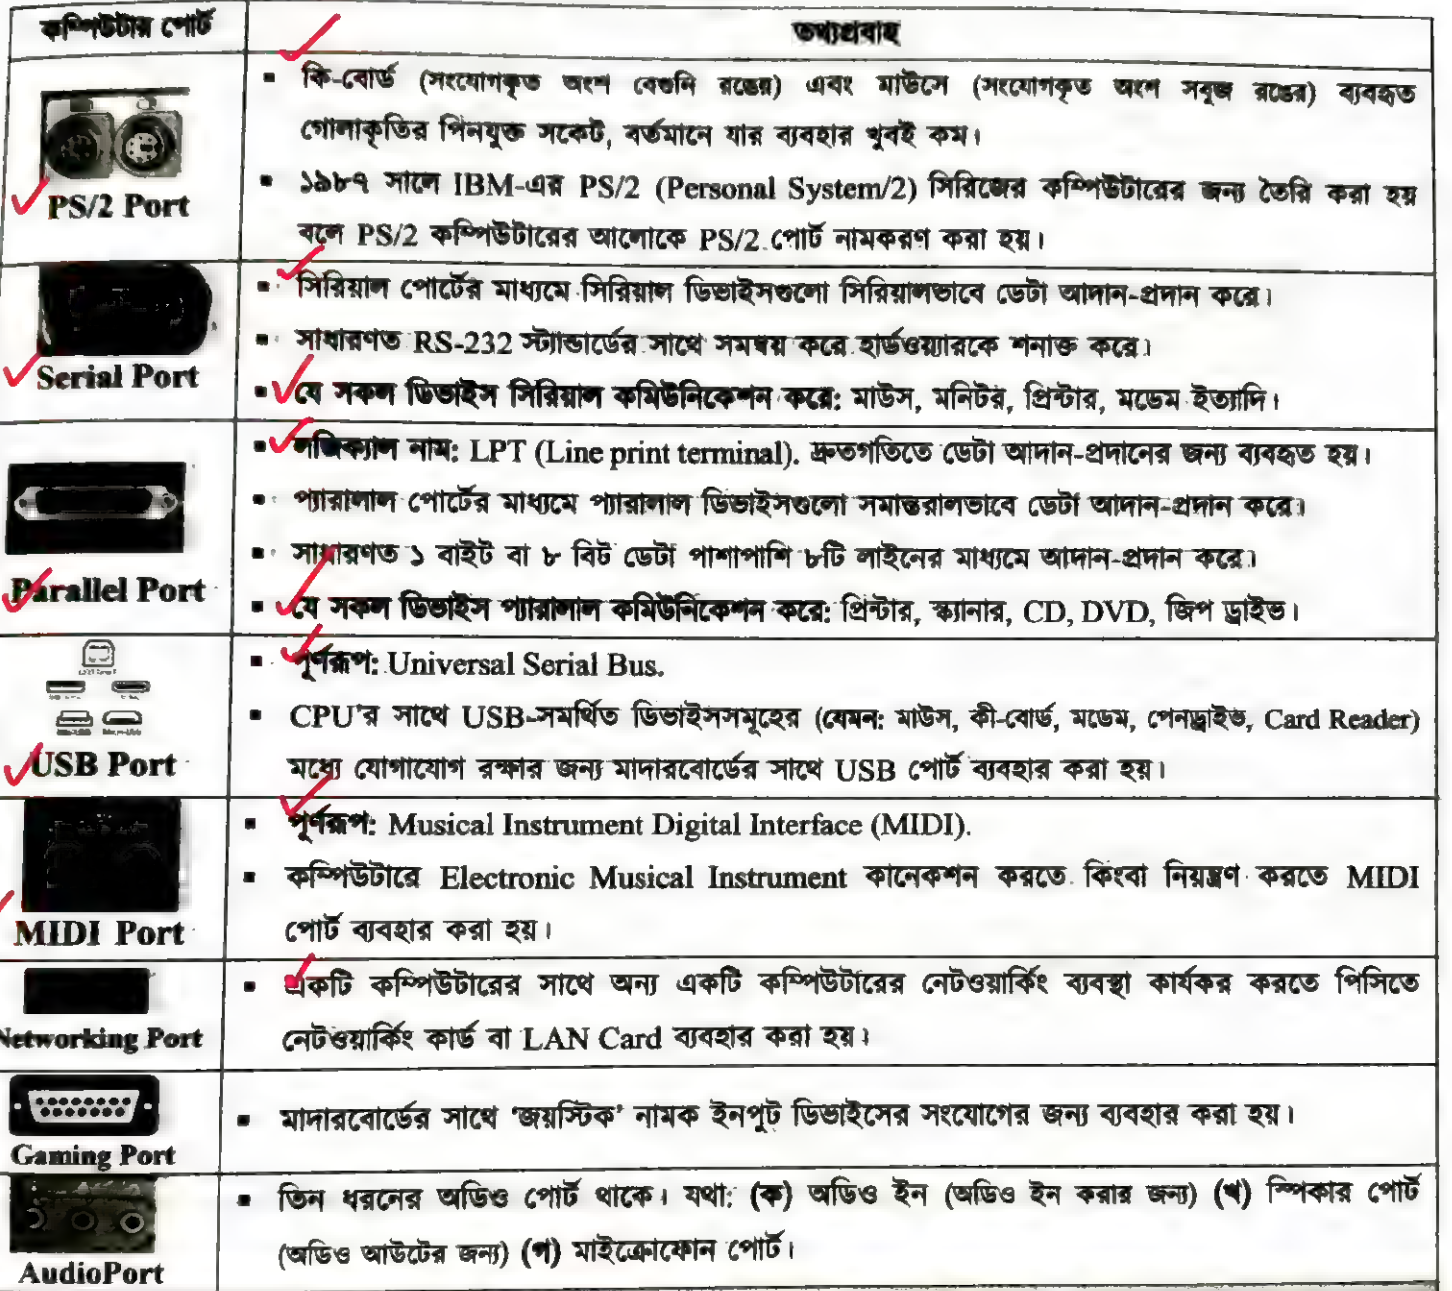 কম্পিউটার পোর্ট
তথ্যপ্রবাহ
PS/2 Port
▪ কি-বোর্ড (সংযোগকৃত অংশ বেগুনি রঙের) এবং মাউসে (সংযোগকৃত অংশ সবুজ রঙের) ব্যবহৃত
গোলাকৃতির পিনযুক্ত সকেট, বর্তমানে যার ব্যবহার খুবই কম।
▪ ১৯৮৭ সালে IBM-এর PS/2 (Personal System/2) সিরিজের কম্পিউটারের জন্য তৈরি করা হয়
বলে PS/2 কম্পিউটারের আলোকে PS/2 পোর্ট নামকরণ করা হয়।
Serial Port
▪ সিরিয়াল পোর্টের মাধ্যমে সিরিয়াল ডিভাইসগুলো সিরিয়ালভাবে ডেটা আদান-প্রদান করে।
▪ সাধারণত RS-232 স্ট্যান্ডার্ডের সাথে সমন্বয় করে হার্ডওয়্যারকে শনাক্ত করে।
▪ যে সকল ডিভাইস সিরিয়াল কমিউনিকেশন করে: মাউস, মনিটর, প্রিন্টার, মডেম ইত্যাদি।
Parallel Port
▪ লজিক্যাল নাম: LPT (Line print terminal). দ্রুতগতিতে ডেটা আদান-প্রদানের জন্য ব্যবহৃত হয়।
▪ প্যারালাল পোর্টের মাধ্যমে প্যারালাল ডিভাইসগুলো সমান্তরালভাবে ডেটা আদান-প্রদান করে।
▪ সাধারণত ১ বাইট বা ৮ বিট ডেটা পাশাপাশি ৮টি লাইনের মাধ্যমে আদান-প্রদান করে।
▪ যে সকল ডিভাইস প্যারালাল কমিউনিকেশন করে: প্রিন্টার, স্ক্যানার, CD, DVD, জিপ ড্রাইভ।
USB Port
▪ পূর্ণরূপ: Universal Serial Bus.
▪ CPU'র সাথে USB-সমর্থিত ডিভাইসসমূহের (যেমন: মাউস, কী-বোর্ড, মডেম, পেনড্রাইভ, Card Reader)
মধ্যে যোগাযোগ রক্ষার জন্য মাদারবোর্ডের সাথে USB পোর্ট ব্যবহার করা হয়।
MIDI Port
▪ পূর্ণরূপ: Musical Instrument Digital Interface (MIDI).
▪ কম্পিউটারে Electronic Musical Instrument কানেকশন করতে কিংবা নিয়ন্ত্রণ করতে MIDI
পোর্ট ব্যবহার করা হয়।
Networking Port
▪ একটি কম্পিউটারের সাথে অন্য একটি কম্পিউটারের নেটওয়ার্কিং ব্যবস্থা কার্যকর করতে পিসিতে
নেটওয়ার্কিং কার্ড বা LAN Card ব্যবহার করা হয়।
Gaming Port
▪ মাদারবোর্ডের সাথে 'জয়স্টিক' নামক ইনপুট ডিভাইসের সংযোগের জন্য ব্যবহার করা হয়।
AudioPort
▪ তিন ধরনের অডিও পোর্ট থাকে। যথা: (ক) অডিও ইন (অডিও ইন করার জন্য) (খ) স্পিকার পোর্ট
(অডিও আউটের জন্য) (গ) মাইক্রোফোন পোর্ট।